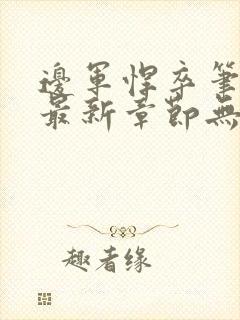 邊軍悍卒筆
最新章節無
趣者缘